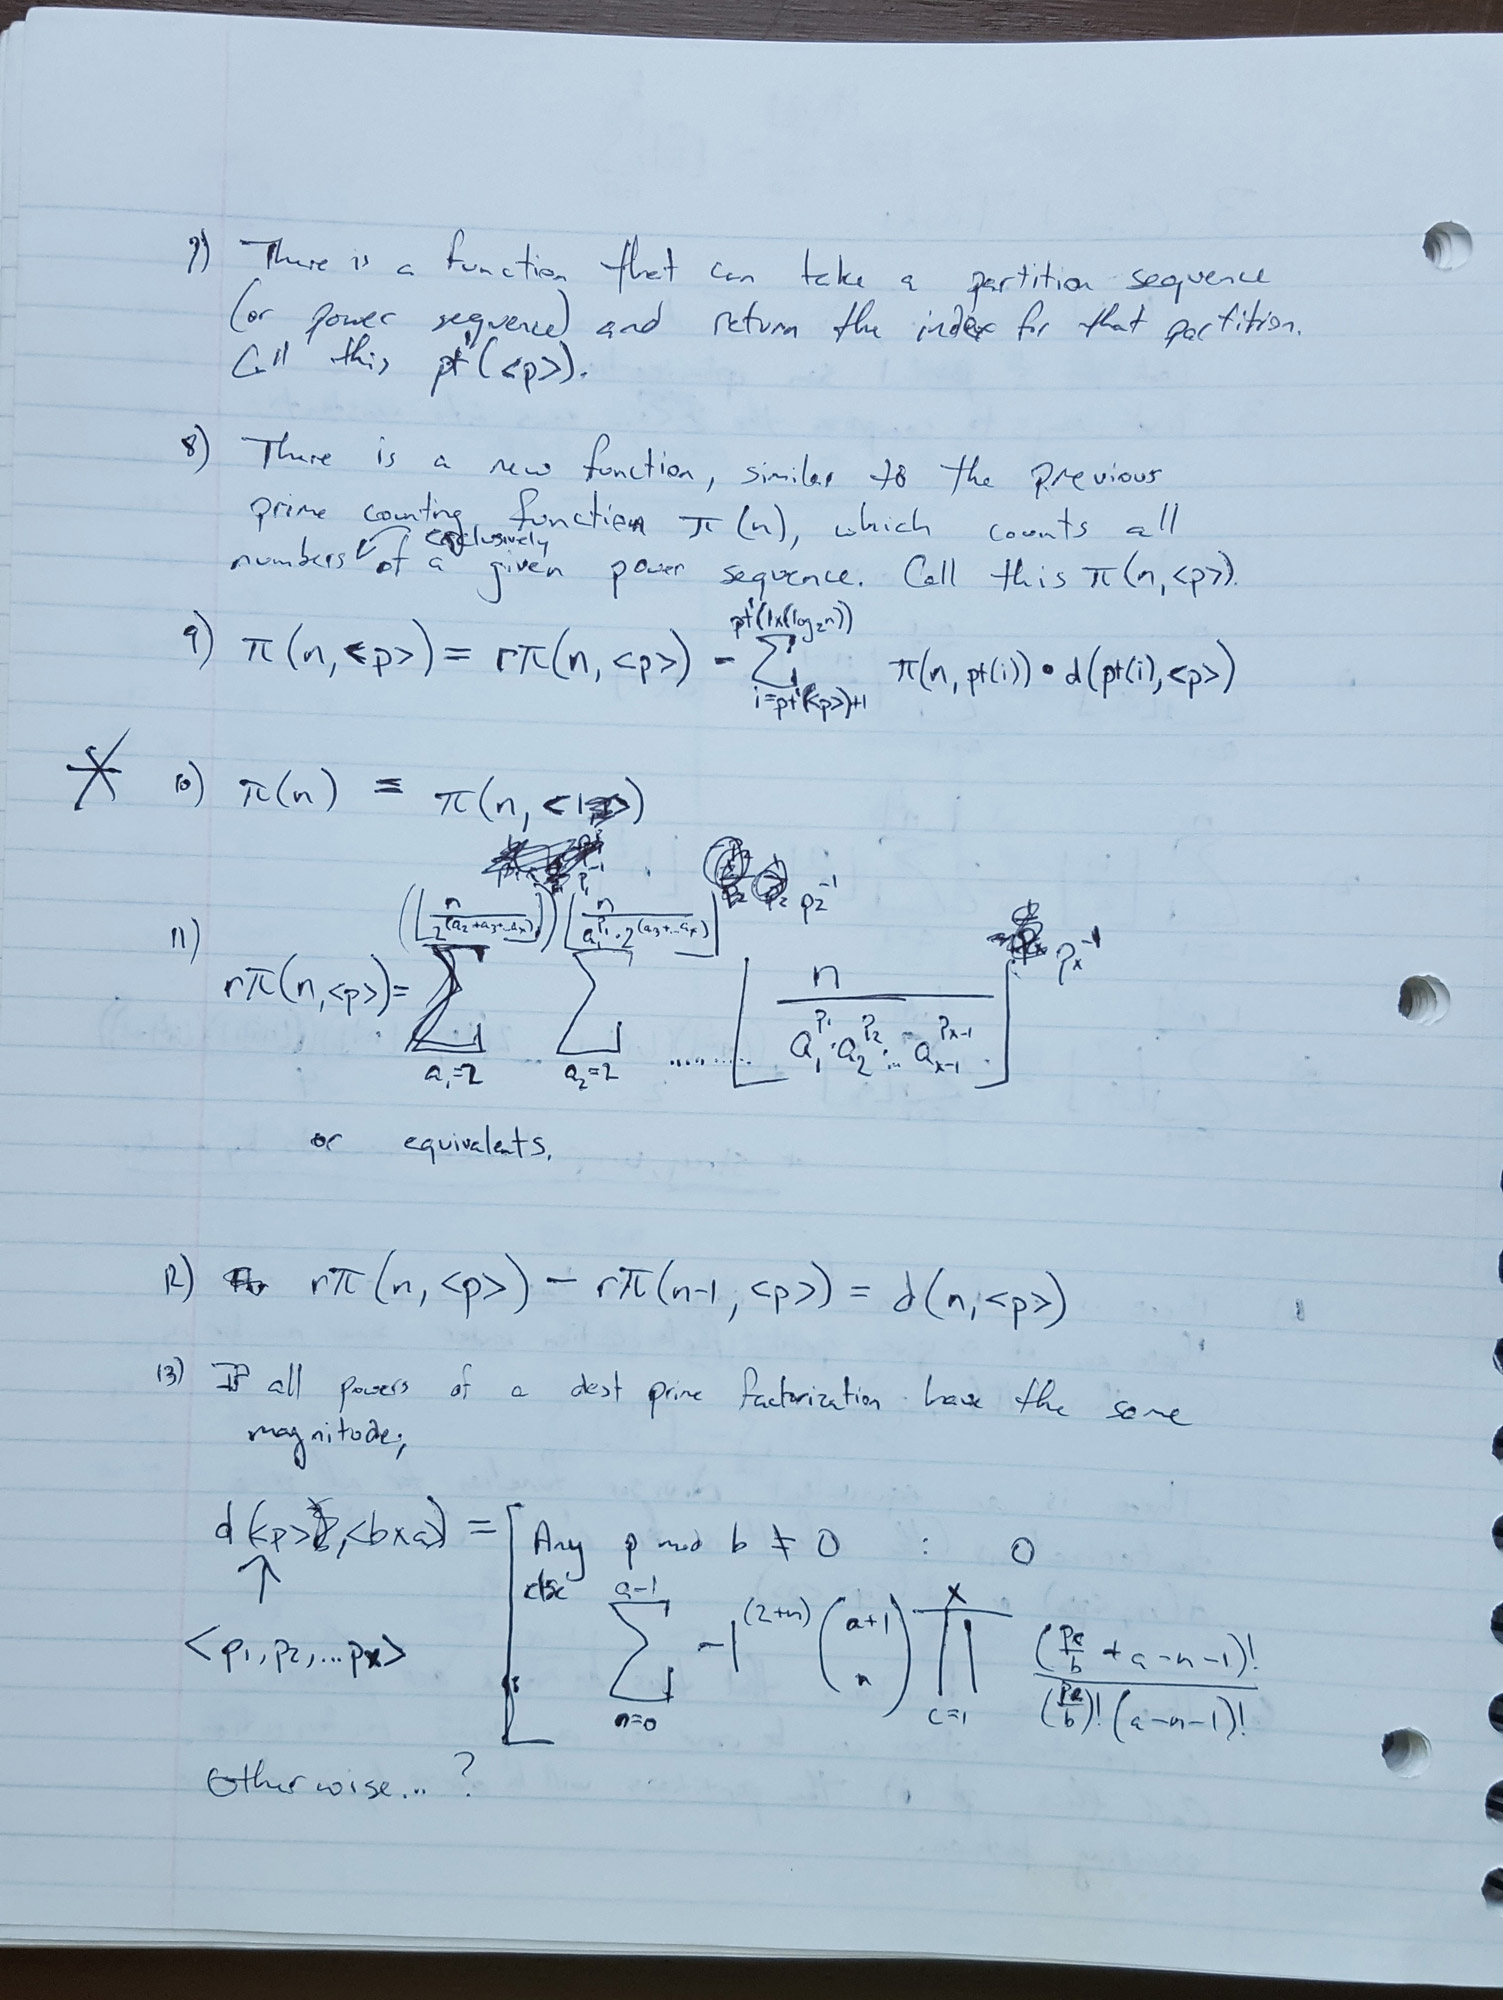 7) There is a function that can take a partition sequence
(or power sequence) and return the index for that partition.
Call this pt'(<p>).
8) There is a new function, similar to the previous
prime counting function π(n), which counts all
exclusively
numbers of a given power sequence. Call this π(n,<p>).
9) π(n,<p>) = rπ(n,<p>) - Σ_{i=pt'(<p>)+1}^{pt'(1x(log₂n))} π(n,pt(i)) • d(pt(i),<p>)
10) π(n) = π(n,<1>)
11) rπ(n,<p>) = Σ_{a₁=2}^{(⌊n/2^(a₂+a₃+...aₓ)⌋)^{p₁^-1}} Σ_{a₂=2}^{⌊n/(a₁^{p₁}·2^(a₃+...aₓ))⌋^{p₂^-1}} ........ ⌊n/(a₁^{p₁}·a₂^{p₂}·...a_{x-1}^{p_{x-1}})⌋^{pₓ^-1}
or equivalents.
12) rπ(n,<p>) - rπ(n-1,<p>) = d(n,<p>)
13) If all powers of a dest prime factorization have the same
magnitude;
d(<p>,<bxa>) = [ Any p mod b ≠ 0 : 0
else Σ_{n=0}^{a-1} -1^(2+n) (a+1 n) Π_{c=1}^{x} (p_c/b + a-n-1)! / (p_c/b)!(a-n-1)!
↑
<p₁,p₂,...pₓ>
Otherwise...?